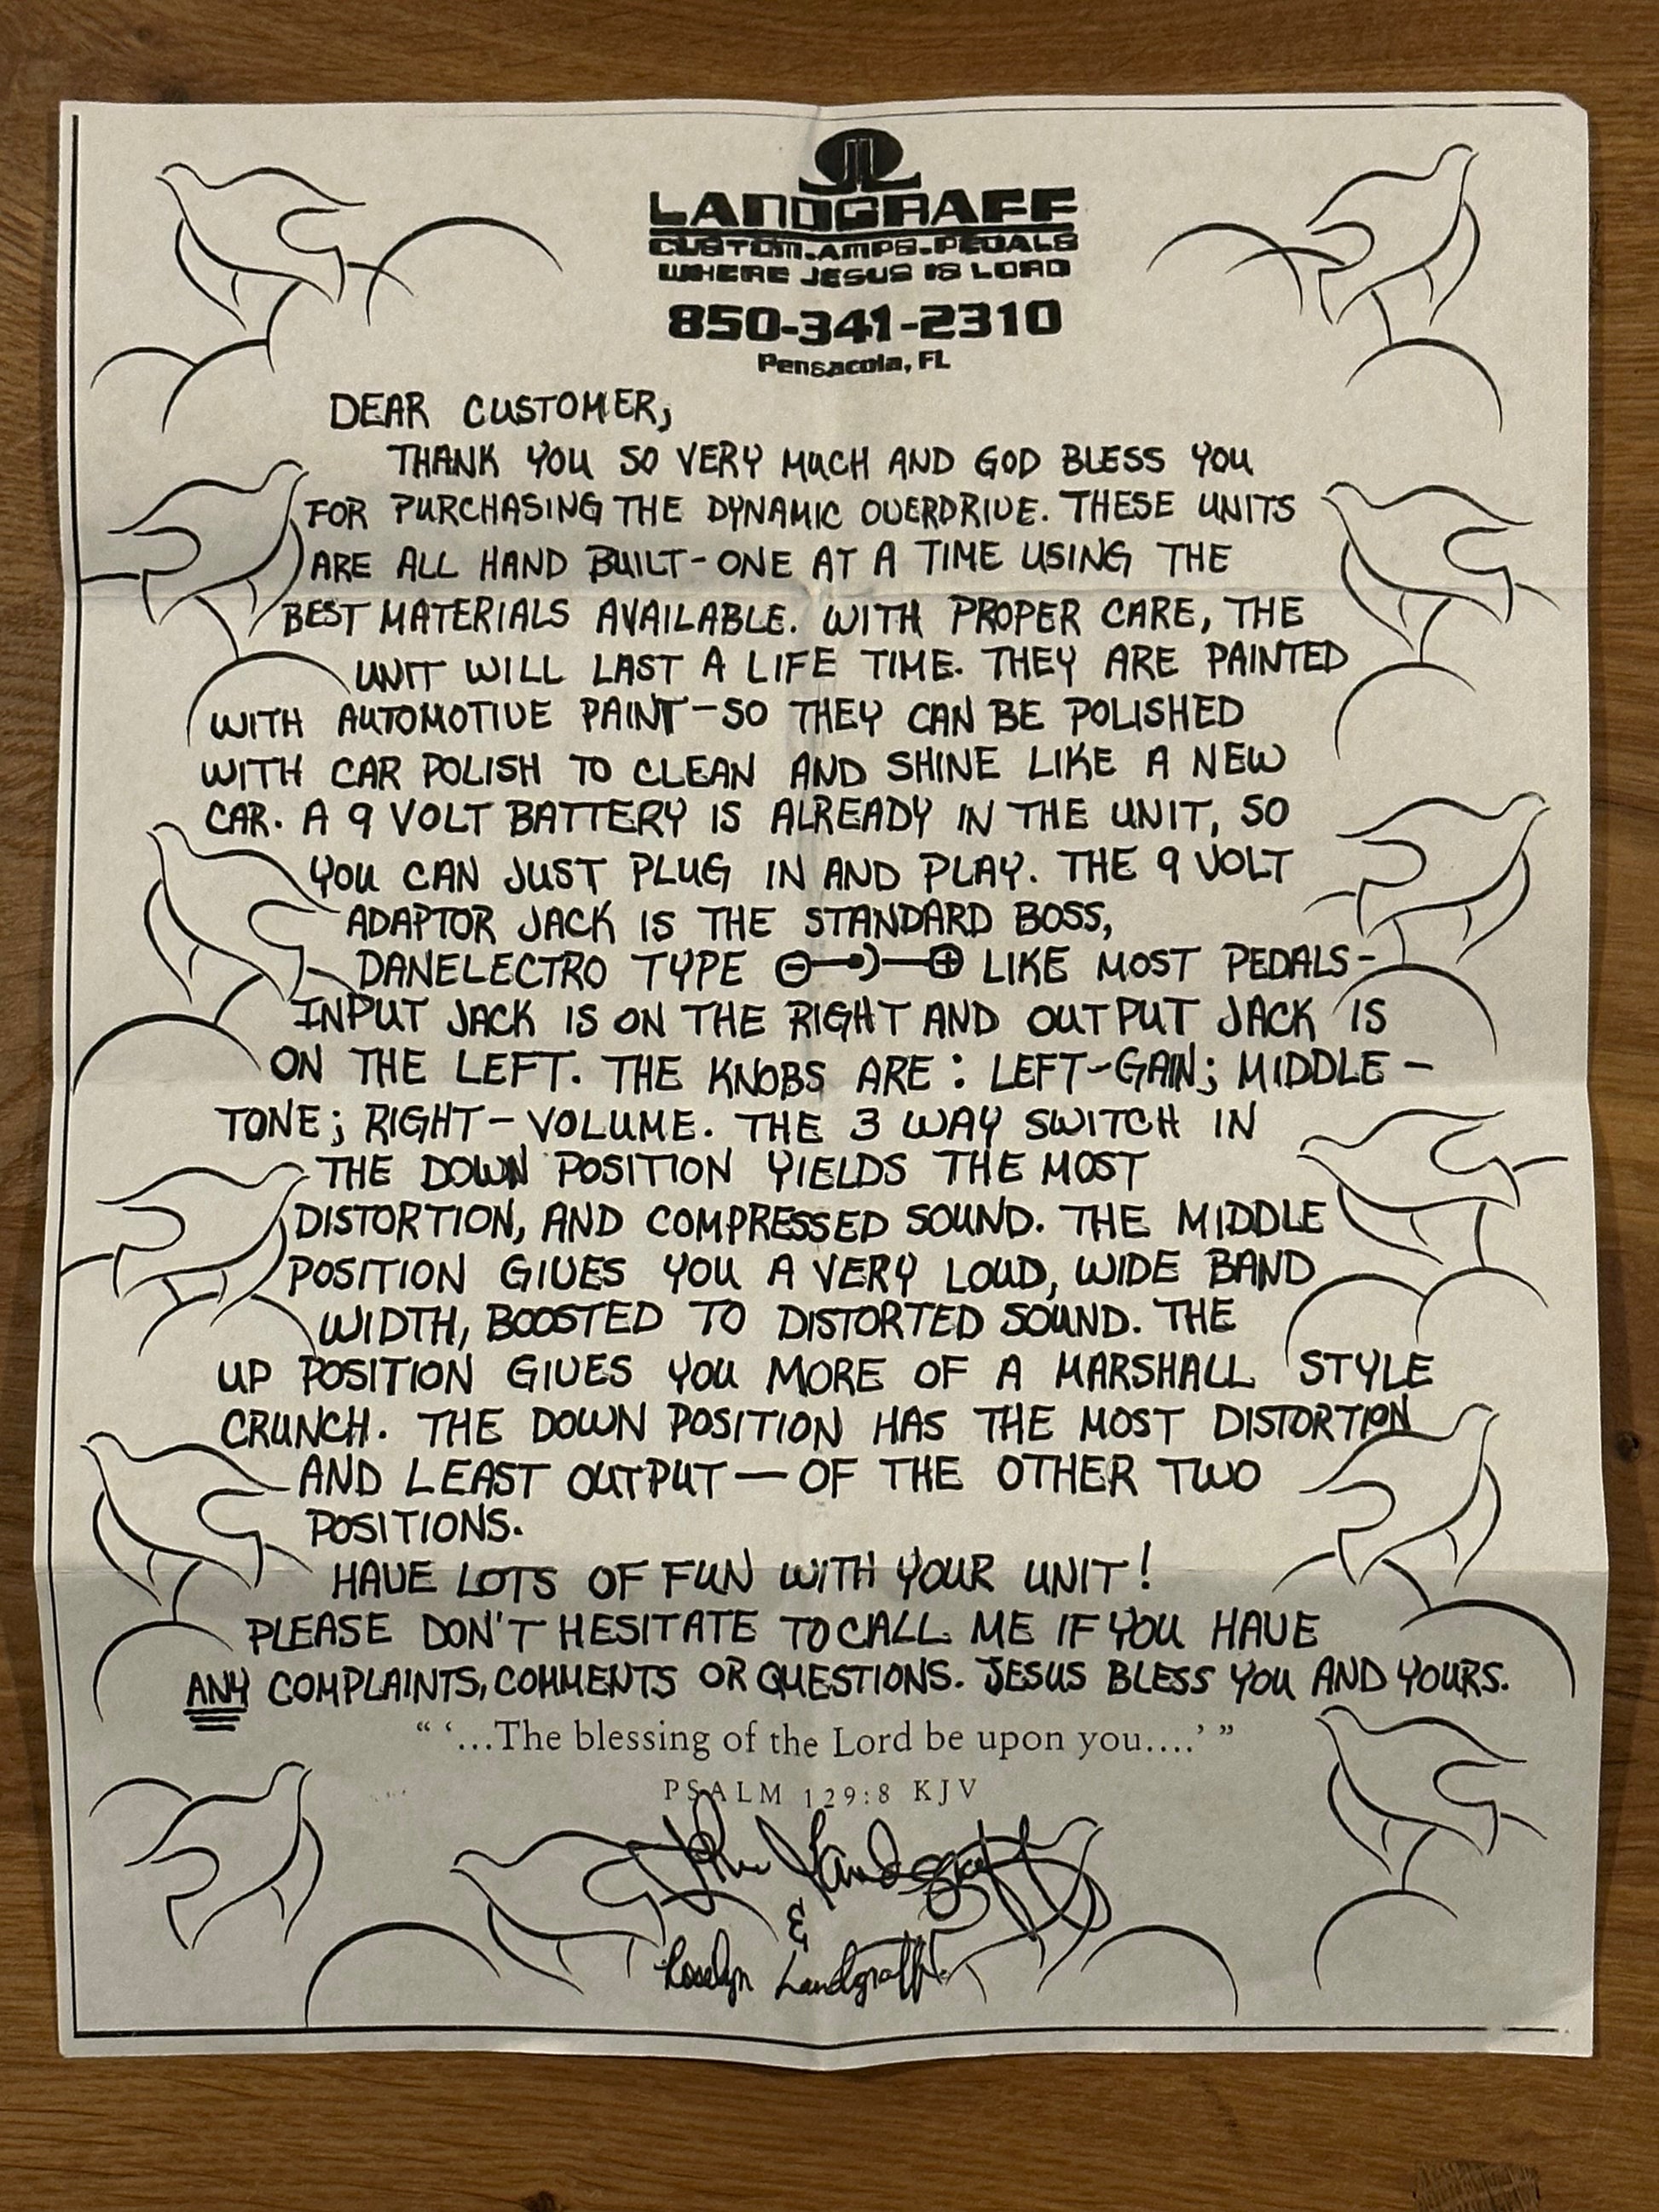 JL
LANDGRAFF
CUSTOM.AMPS.PEDALS
WHERE JESUS IS LORD
850-341-2310
Pensacola, FL
DEAR CUSTOMER,
THANK YOU SO VERY MUCH AND GOD BLESS YOU
FOR PURCHASING THE DYNAMIC OVERDRIVE. THESE UNITS
ARE ALL HAND BUILT-ONE AT A TIME USING THE
BEST MATERIALS AVAILABLE. WITH PROPER CARE, THE
UNIT WILL LAST A LIFE TIME. THEY ARE PAINTED
WITH AUTOMOTIVE PAINT-SO THEY CAN BE POLISHED
WITH CAR POLISH TO CLEAN AND SHINE LIKE A NEW
CAR. A 9 VOLT BATTERY IS ALREADY IN THE UNIT, SO
YOU CAN JUST PLUG IN AND PLAY. THE 9 VOLT
ADAPTOR JACK IS THE STANDARD BOSS,
DANELECTRO TYPE ⊖—•)—⊕ LIKE MOST PEDALS-
INPUT JACK IS ON THE RIGHT AND OUTPUT JACK IS
ON THE LEFT. THE KNOBS ARE: LEFT-GAIN; MIDDLE-
TONE; RIGHT-VOLUME. THE 3 WAY SWITCH IN
THE DOWN POSITION YIELDS THE MOST
DISTORTION, AND COMPRESSED SOUND. THE MIDDLE
POSITION GIVES YOU A VERY LOUD, WIDE BAND
WIDTH, BOOSTED TO DISTORTED SOUND. THE
UP POSITION GIVES YOU MORE OF A MARSHALL STYLE
CRUNCH. THE DOWN POSITION HAS THE MOST DISTORTION
AND LEAST OUTPUT — OF THE OTHER TWO
POSITIONS.
HAVE LOTS OF FUN WITH YOUR UNIT!
PLEASE DON'T HESITATE TO CALL ME IF YOU HAVE
ANY COMPLAINTS, COMMENTS OR QUESTIONS. JESUS BLESS YOU AND YOURS.
“ ‘...The blessing of the Lord be upon you....’ ”
PSALM 129:8 KJV
John Landgraff
&
Roselyn Landgraff